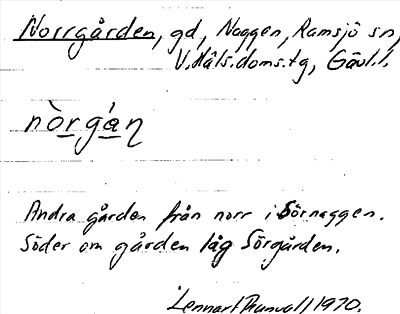 Norrgården, gd, Naggen, Ramsjö sn,
V.Häls.doms.tg, Gävl.l.
nòrgán
Andra gården från norr i Sörnaggen.
Söder om gården låg Sörgården.
Lennart 1970.